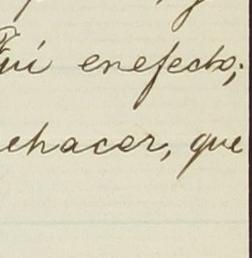 Fuí en efecto;
ehacer, que